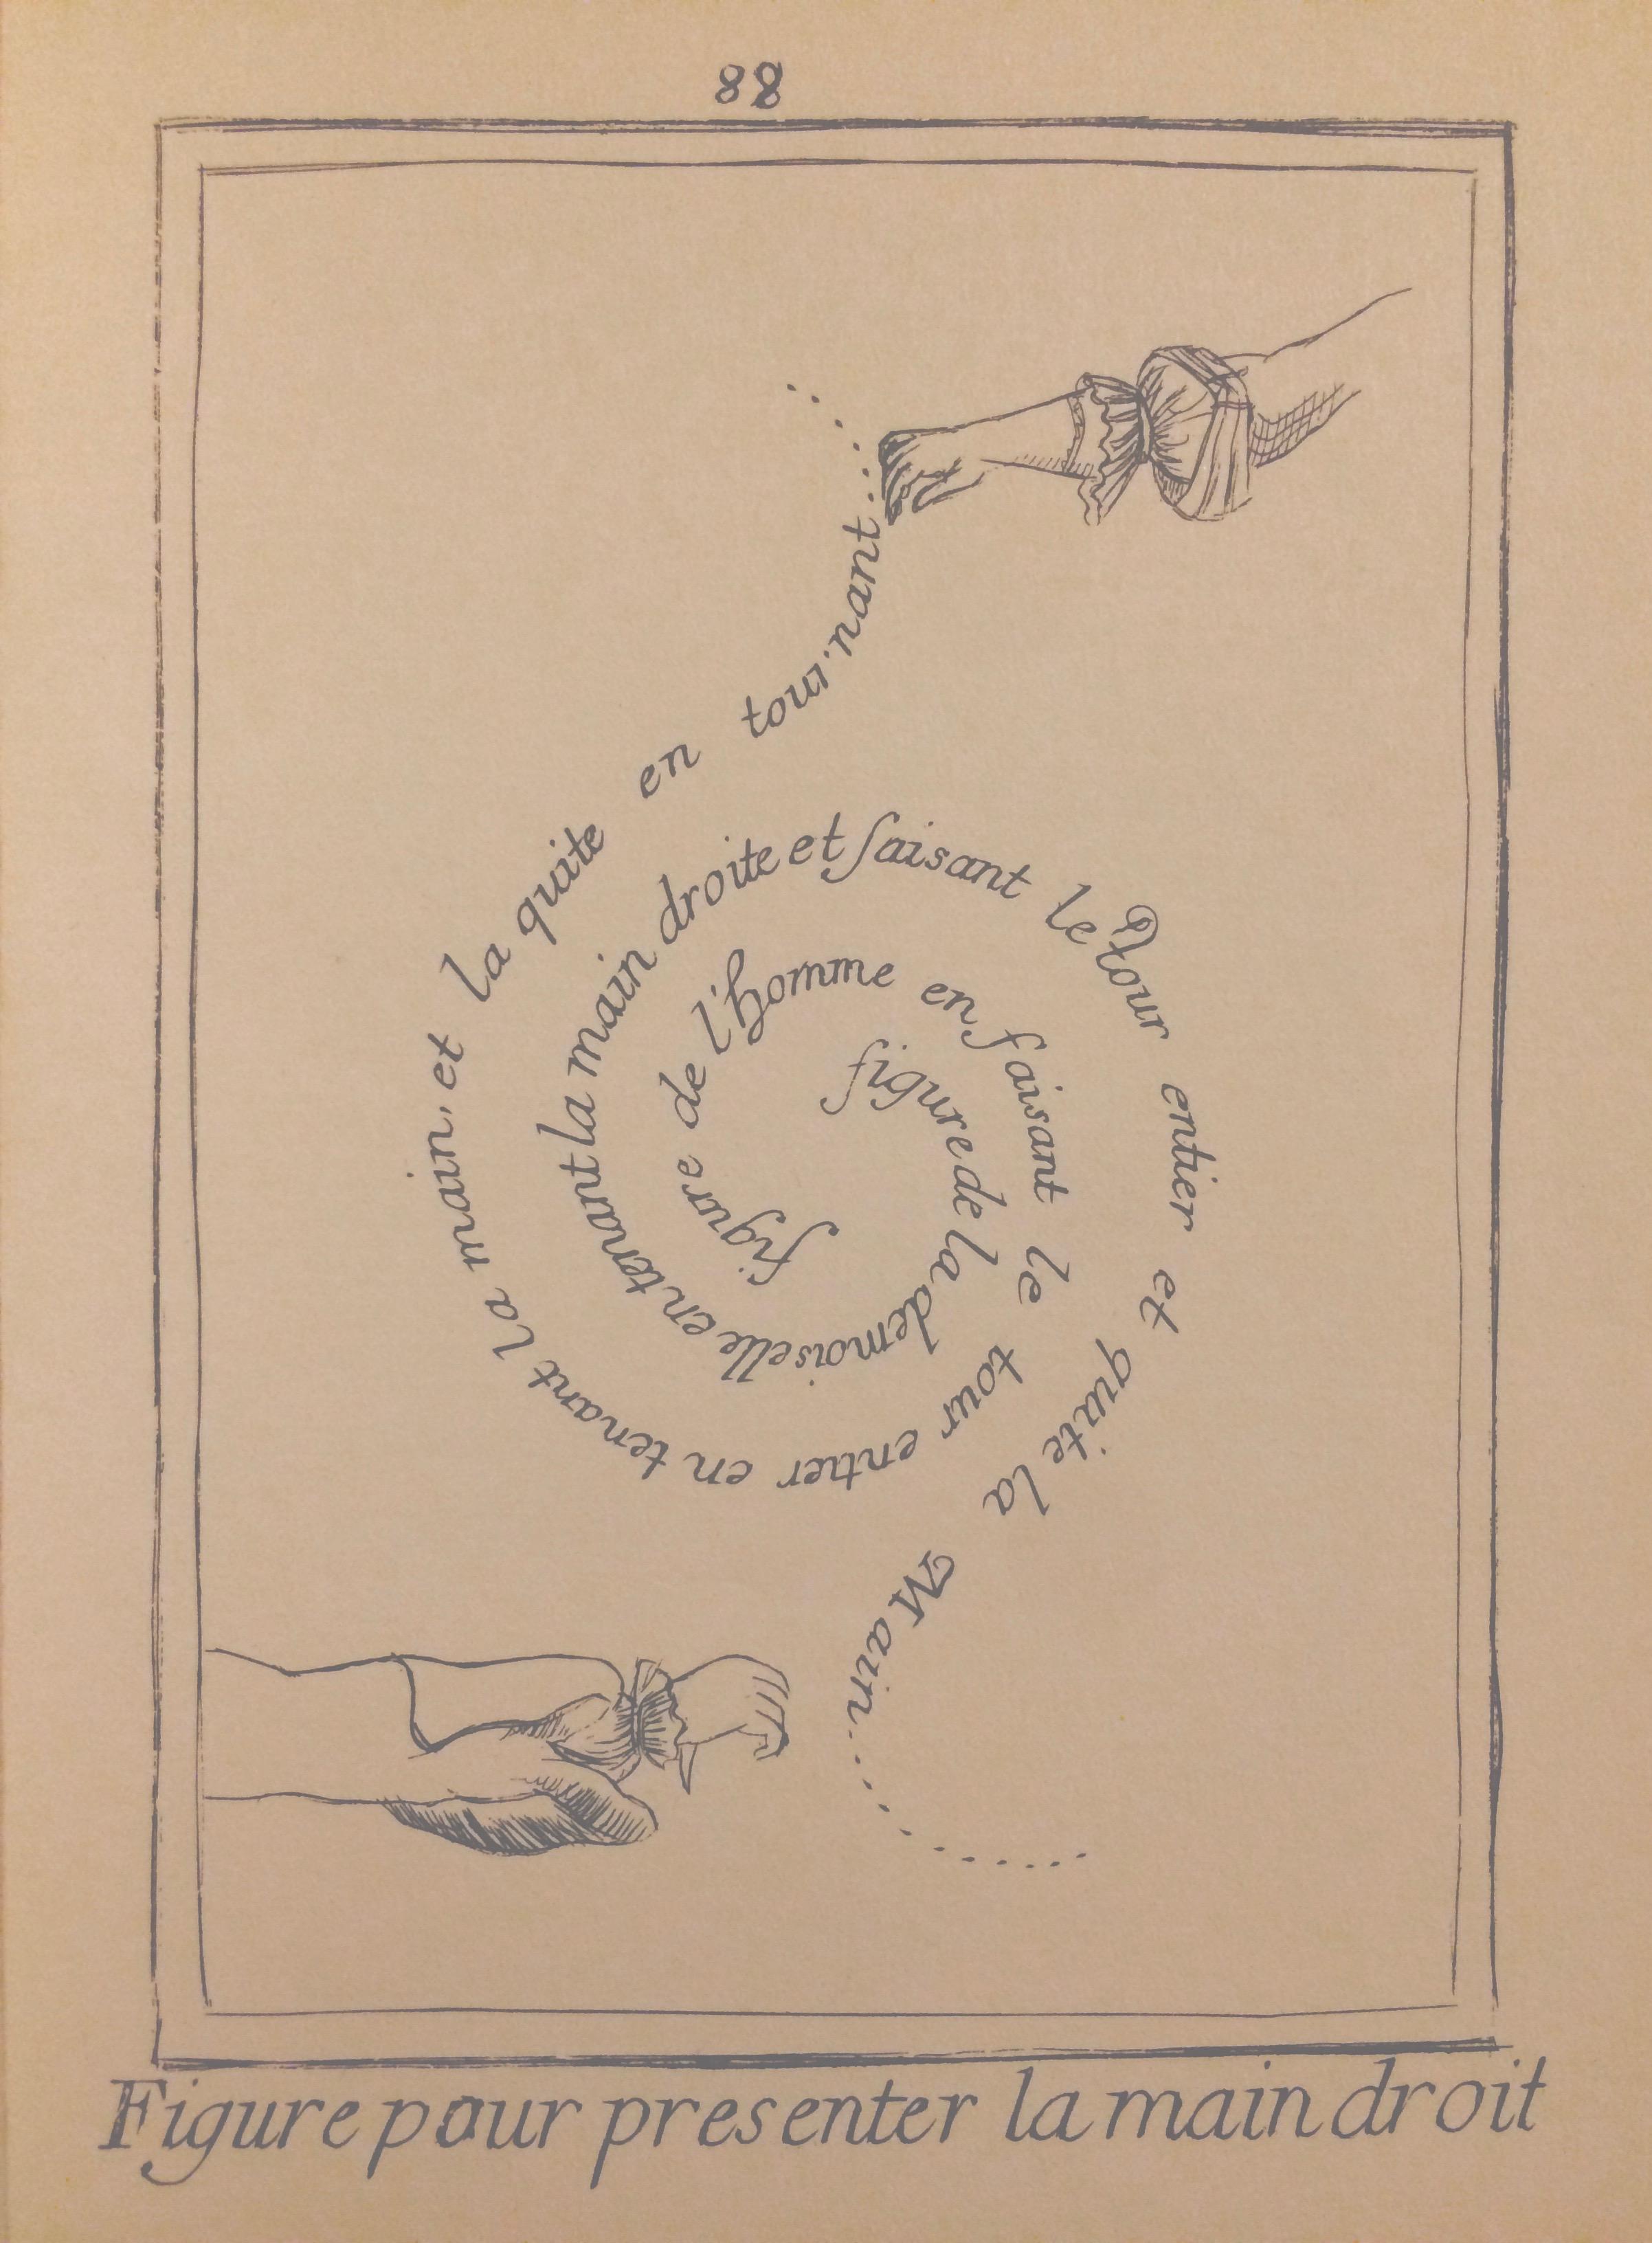 88
figure de l'homme en faisant le tour entier en tenant la main, et la quite en tournant.....
figure de la demoiselle en tenant la main droite et faisant le Tour entier et quite la Main..........
Figure pour presenter la main droit